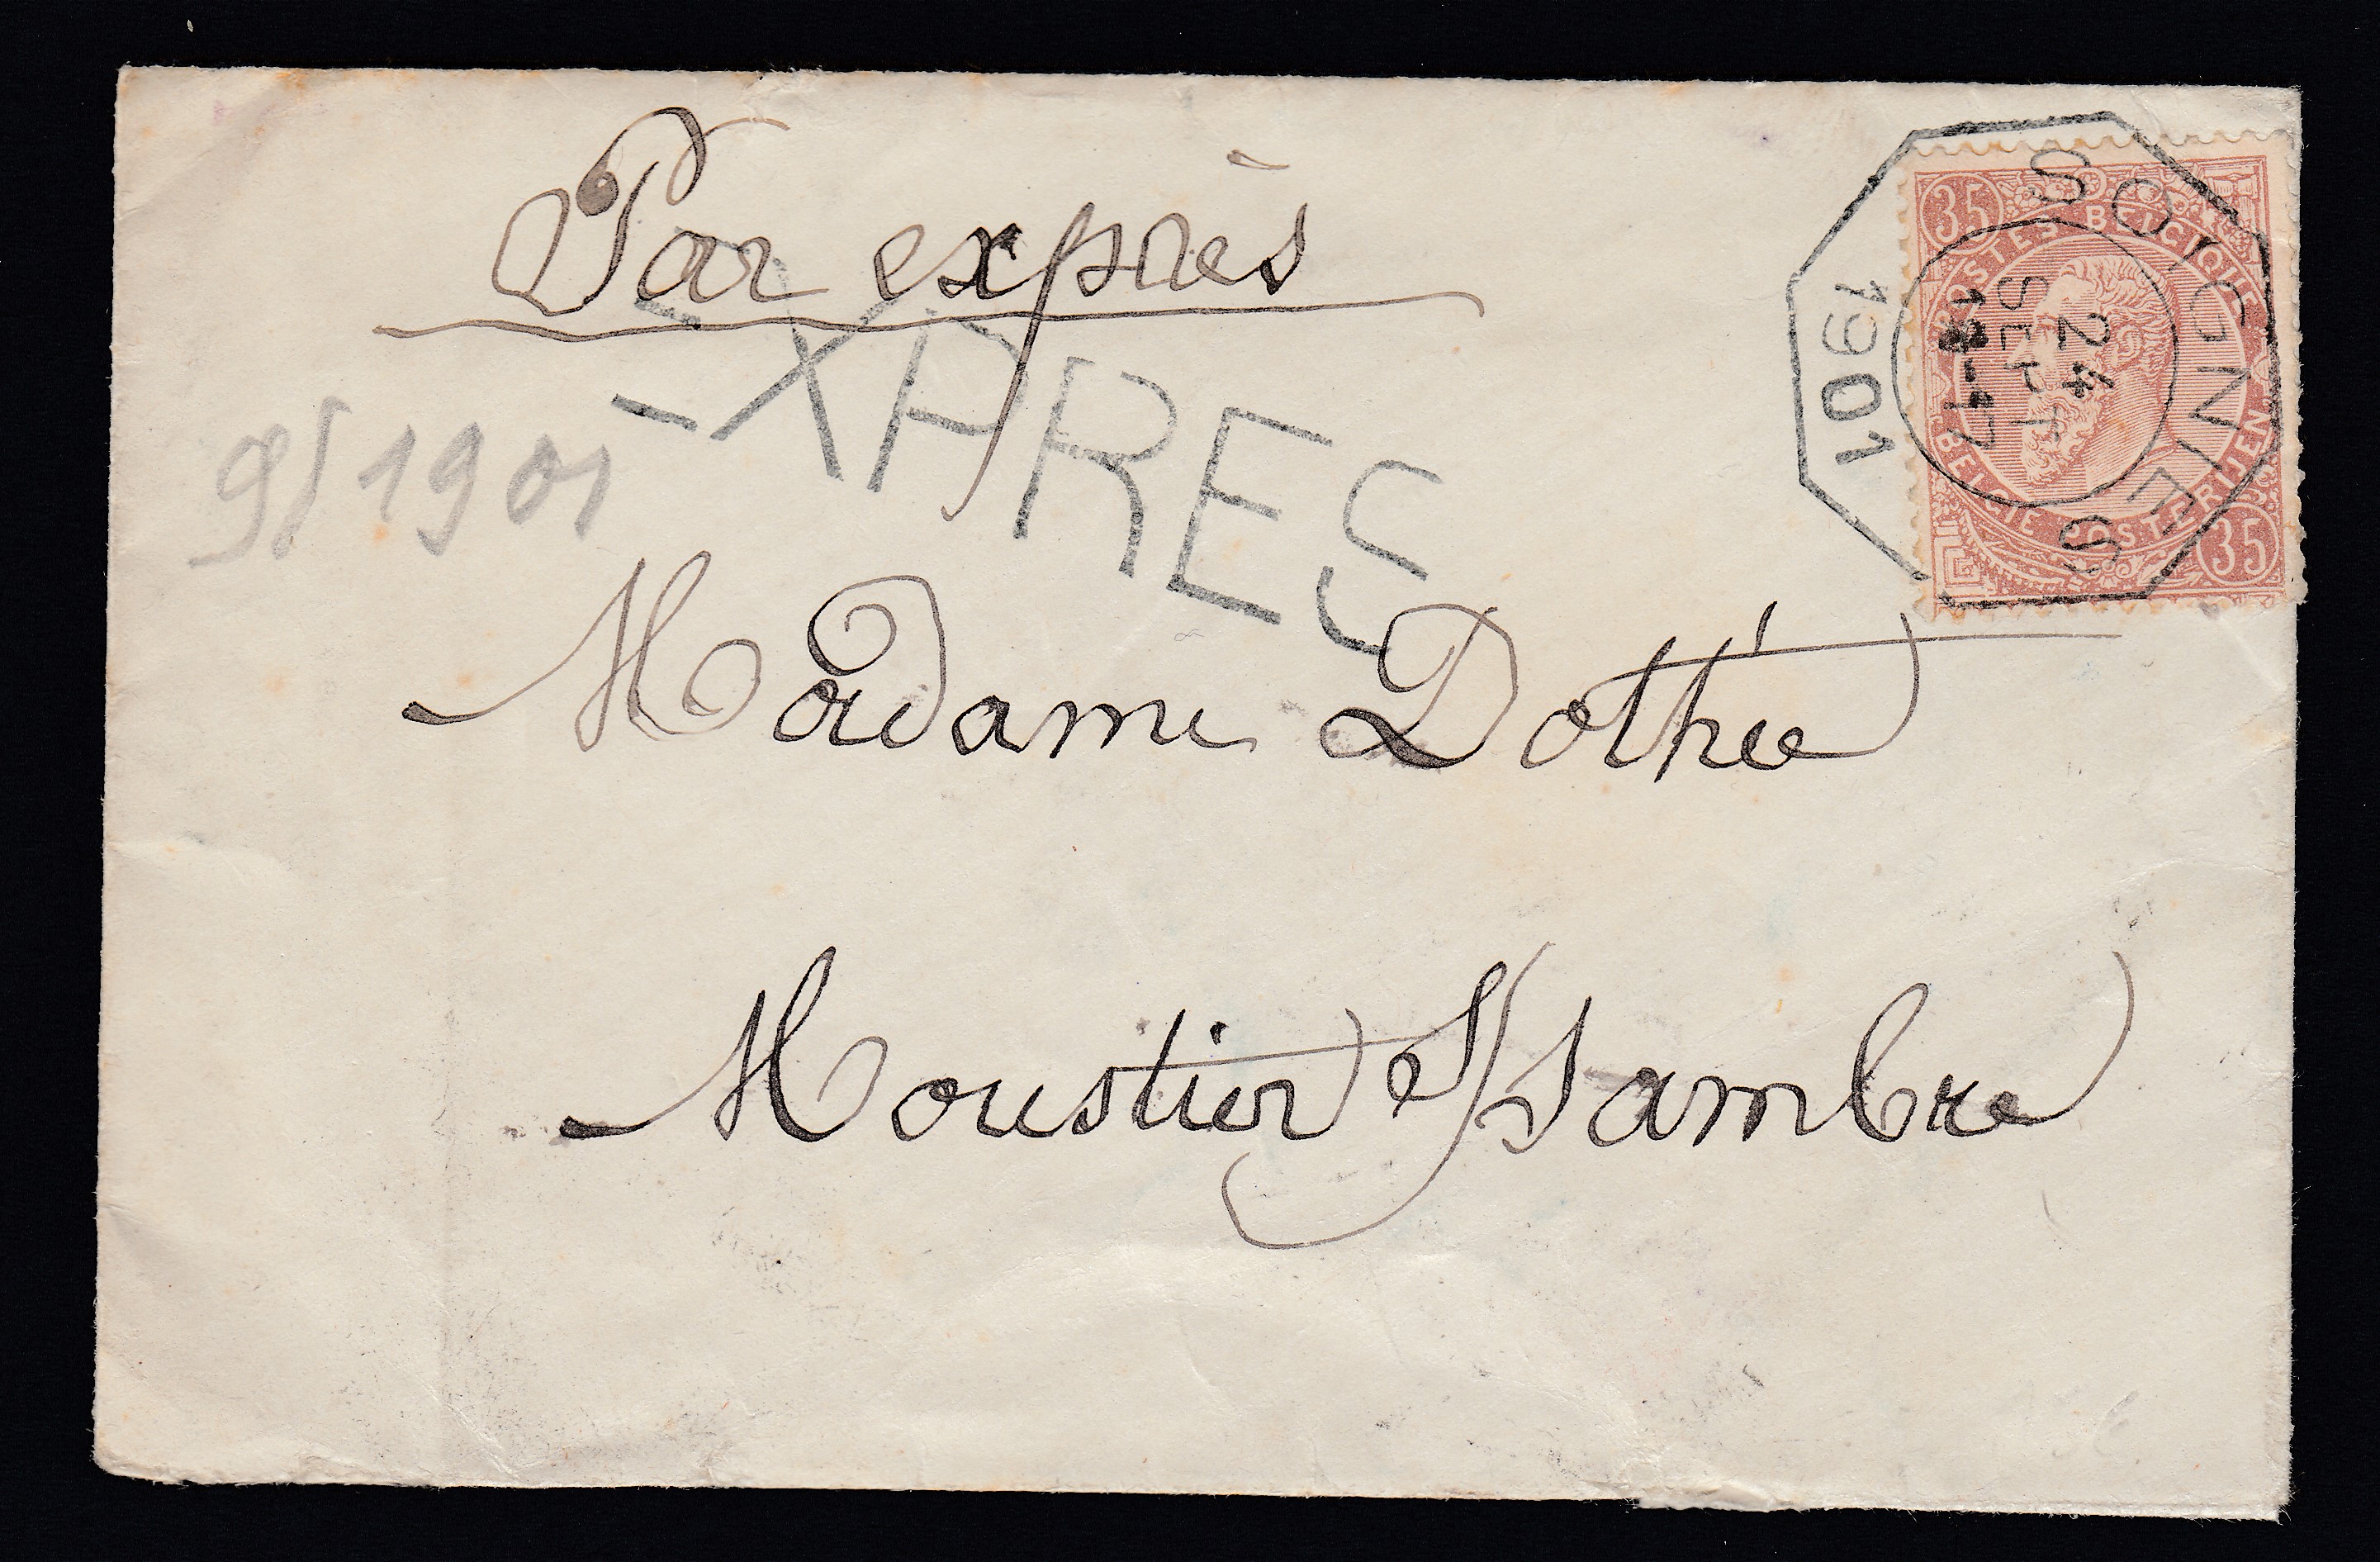 Par exprès
EXPRES
9/1901
35
POSTES BELGIQUE
BELGIE POSTERIJEN
35
SOIGNIES
24
SEPT
1901
Madame Dothée
Moustier s/Sambre